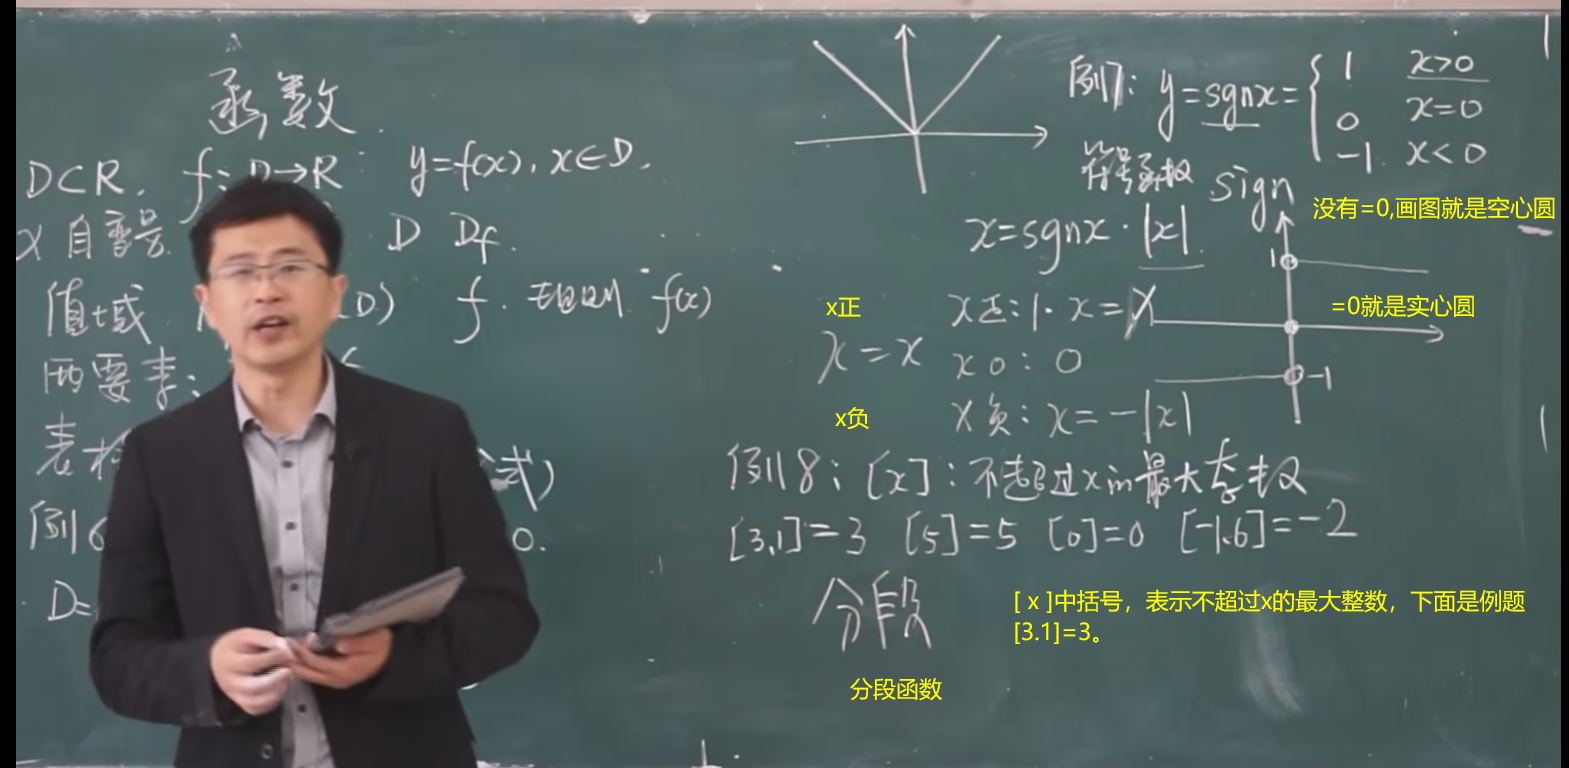 函数
D⊂R. f: D→R y=f(x), x∈D.
x 自变量 D Df.
值域 (D) f. 规则 f(x)
两要素:
表格 式)
例6 0.
D=
例7: y=sgnx= { 1 x>0
0 x=0
-1. x<0
符号函数 sign
没有=0,画图就是空心圆
x=sgnx·|x|.
1
x正
x正: 1·x=x
=0就是实心圆
x=x x0: 0
-1
x负
x负: x=-|x|
例8: [x]: 不超过x的最大整数
[3.1]=3 [5]=5 [0]=0 [-1.6]=-2
分段
[ x ]中括号，表示不超过x的最大整数，下面是例题
[3.1]=3。
分段函数